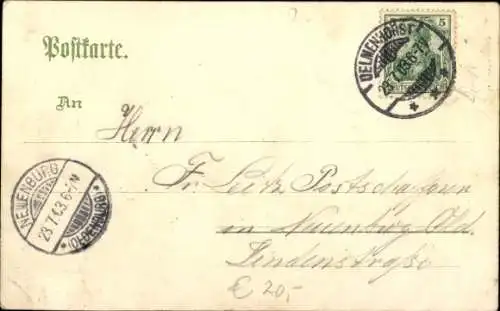 Postkarte.
5
DELMENHORST
An
Herrn
NEUENBURG
23.7.03.6-7N
*(OLDENBURG)*
Fr.
in Neuenburg Old.
Lindenstraße
€ 20,-